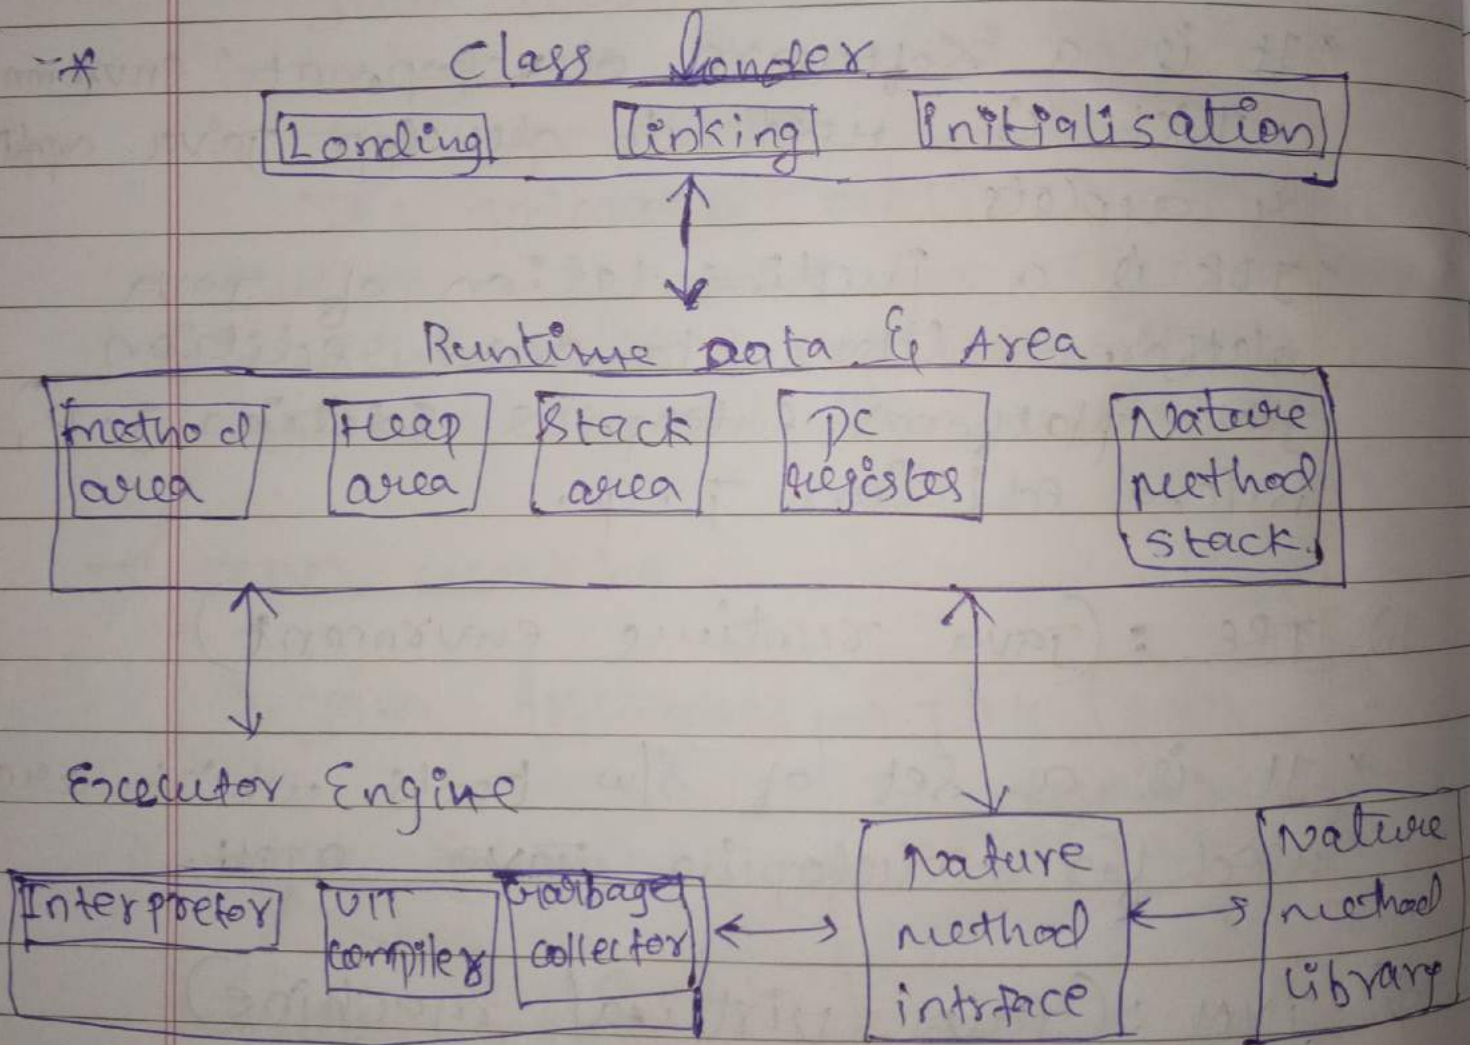 Class Loader
Loading Linking Initialisation
Runtime Data & Area
method area
Heap area
Stack area
PC register
Nature method stack.
Executor Engine
Interpretor
JIT compiler
Garbage collector
Nature method intrface
Nature method Library